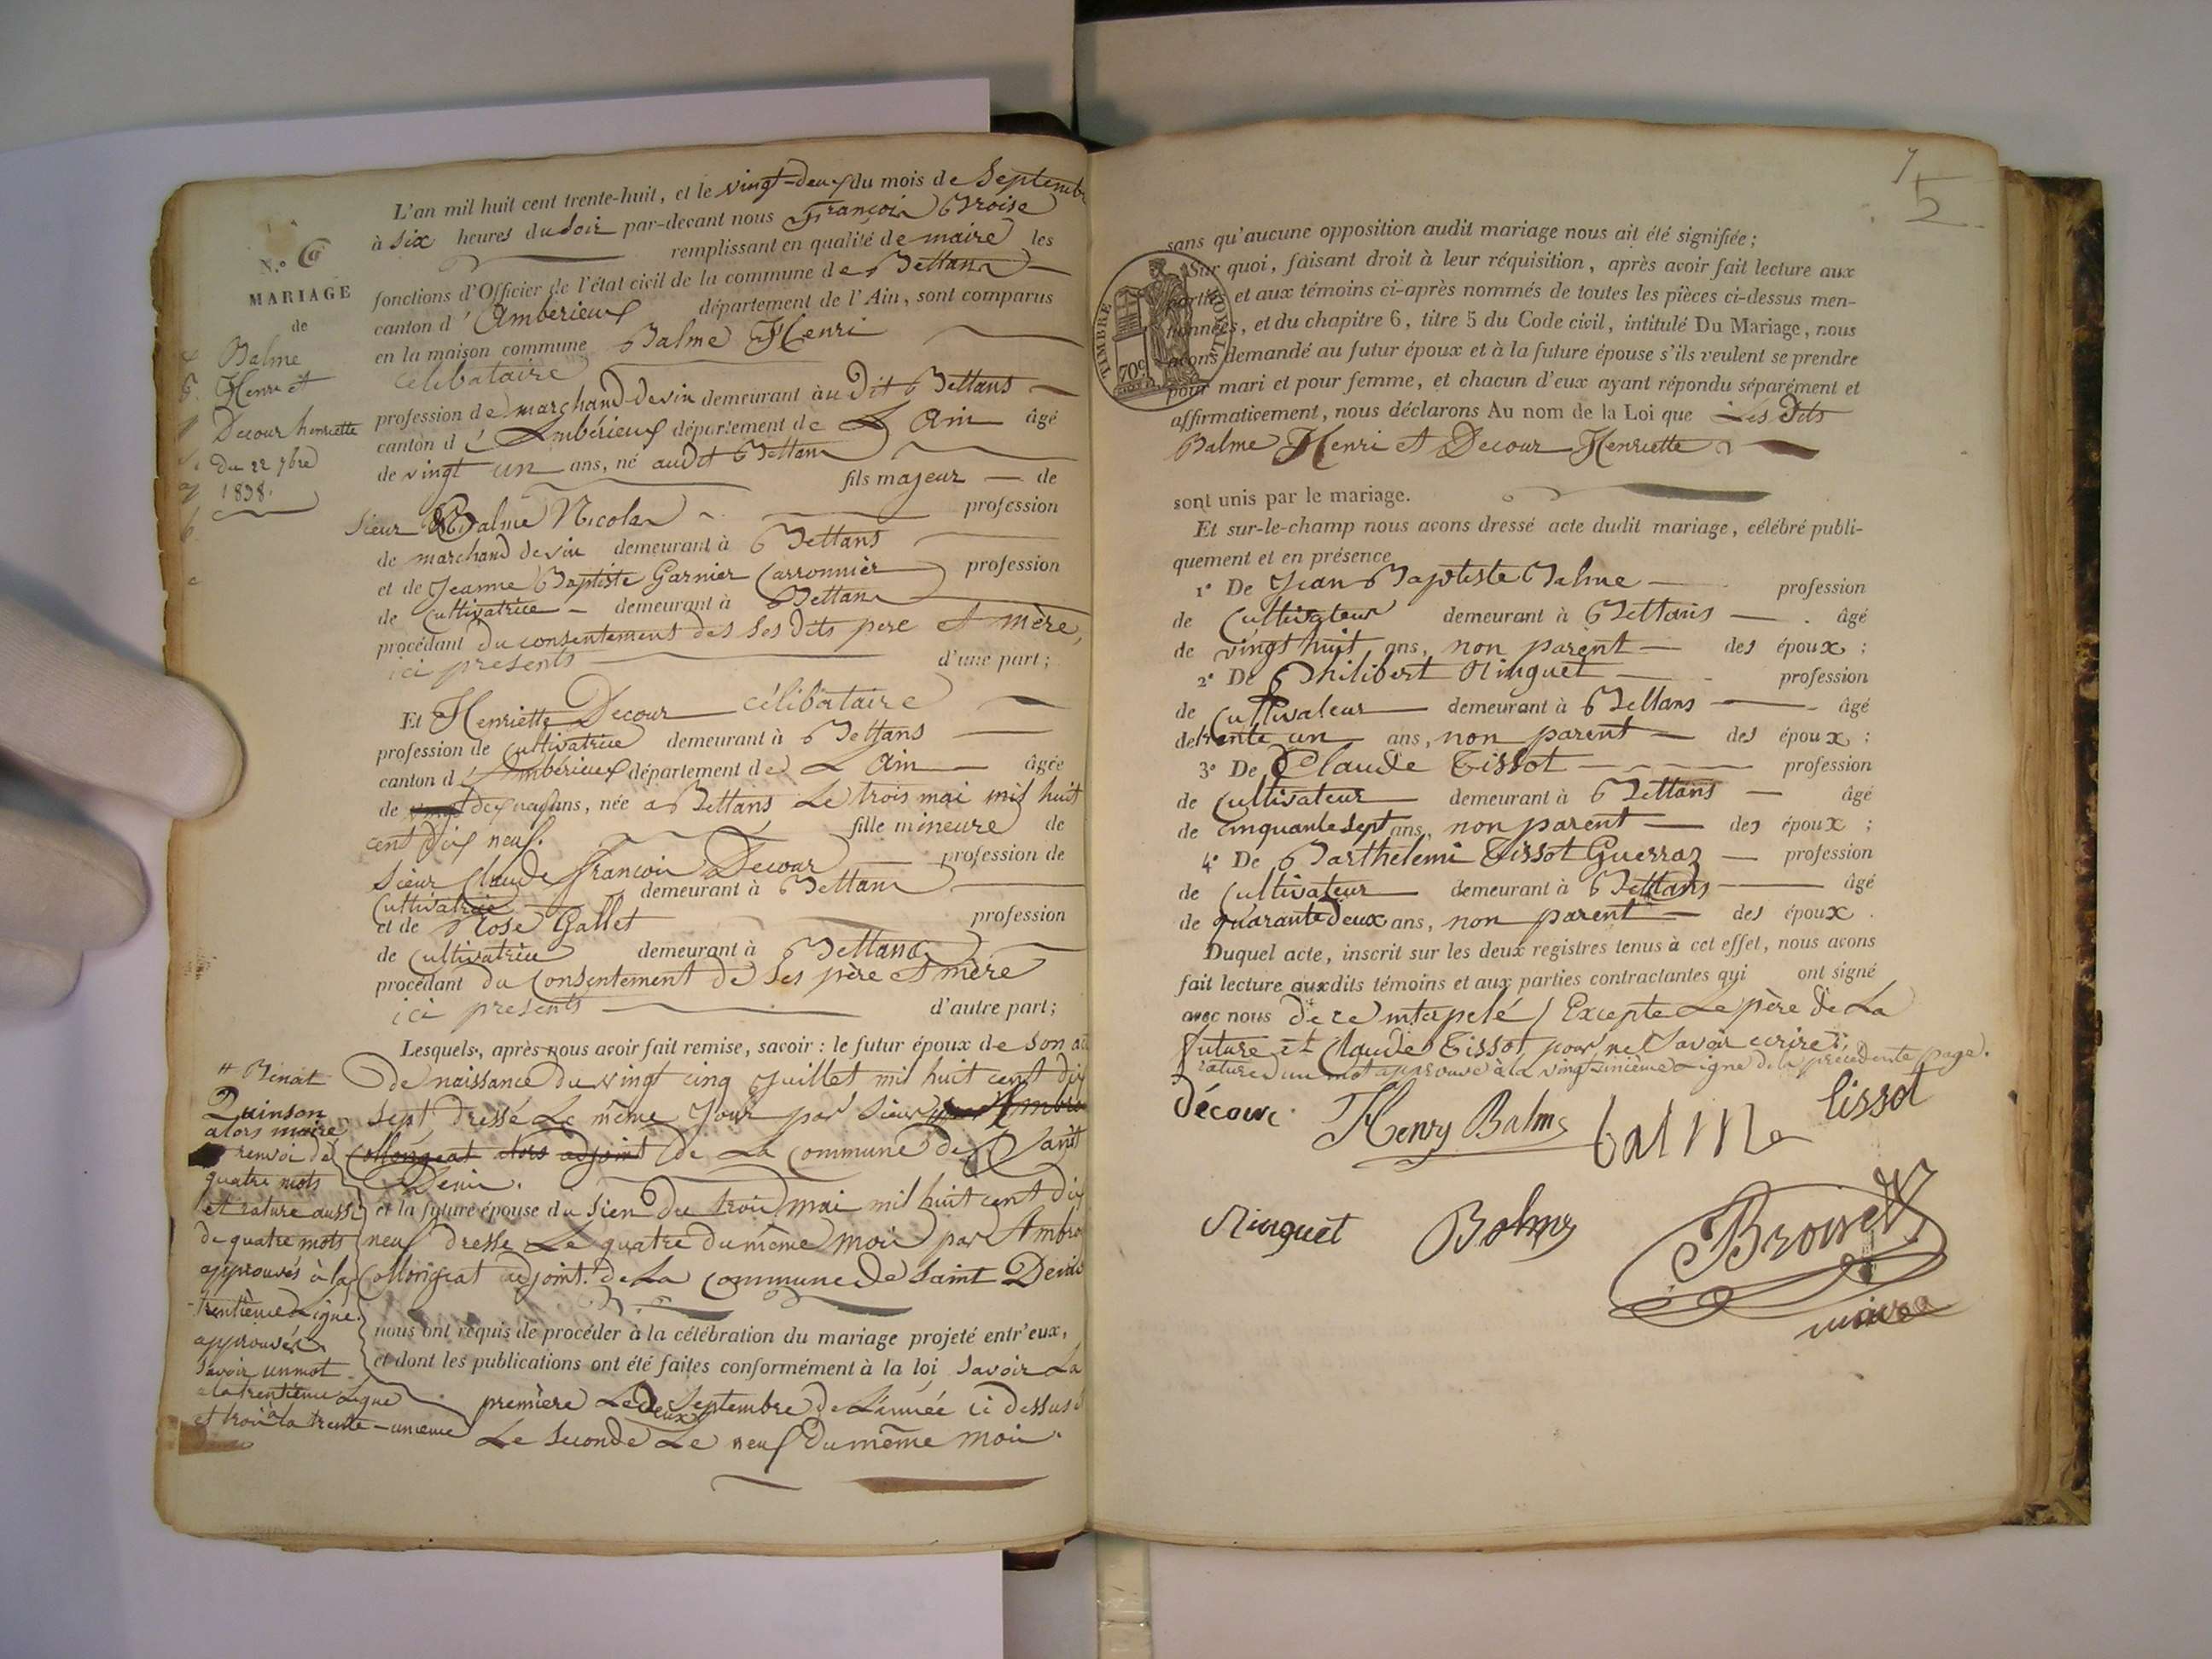 N.º 6
MARIAGE
de
Balme
Henri et
Decour henriette
du 22 7bre
1838.
L'an mil huit cent trente-huit, et le vingt-deux du mois de Septembre
à six heures du soir par-devant nous François
remplissant en qualité de maire les
fonctions d'Officier de l'état civil de la commune de Bettans
canton d'Ambérieux département de l'Ain, sont comparus
en la maison commune Balme Henri
célibataire
profession de marchand de vin demeurant au dit Bettans
canton d'Ambérieux département de L'Ain âgé
de vingt un ans, né audit Bettans
fils majeur de
Sieur Balme Nicolas profession
de marchand de vin demeurant à Bettans
et de Jeanne Baptiste Garnier Carronnier profession
de Cultivatrice demeurant à Bettans
procédant du consentement des ses dits pere et mère,
ici présents d'une part;
Et Henriette Decour célibataire
profession de cultivatrice demeurant à Bettans
canton d'Ambérieux département de L'Ain âgée
de vingt dix neuf ans, née a Bettans Le trois mai mil huit
cent dix neuf. fille mineure de
Sieur Claude françois Decour profession de
Cultivatrice demeurant à Bettans
et de Rose Gallet profession
de Cultivatrice demeurant à Bettans
procédant du Consentement de ses père et mère
ici présents d'autre part;
Lesquels, après nous avoir fait remise, savoir : le futur époux de son
de naissance du vingt cinq Juillet mil huit cent dix
sept, dressé Le même Jour par Sieur Ambro
Collongeat alors adjoint de La Commune de Saint
Denis.
et la future épouse du sien du trois mai mil huit cent dix
neuf dressé Le quatre du même mois par Ambro
Collongeat adjoint de La Commune de Saint Denis
nous ont requis de procéder à la célébration du mariage projeté entr'eux,
et dont les publications ont été faites conformément à la loi savoir La
première Le deux Septembre de L'année ci dessus
Le seconde Le neuf du même mois.
# Benat
Quinson
alors maire
renvoi de
quatre mots
et rature aussi
de quatre mots
approuvés à la
trentième Ligne.
approuvés
savoir un mot
a la trentième Ligne
et trois à la trente-unieme
5
TIMBRE ROYAL
70c
sans qu'aucune opposition audit mariage nous ait été signifiée;
Sur quoi, faisant droit à leur réquisition, après avoir fait lecture aux
parties et aux témoins ci-après nommés de toutes les pièces ci-dessus men-
tionnées, et du chapitre 6, titre 5 du Code civil, intitulé Du Mariage, nous
avons demandé au futur époux et à la future épouse s'ils veulent se prendre
pour mari et pour femme, et chacun d'eux ayant répondu séparément et
affirmativement, nous déclarons Au nom de la Loi que Les Dits
Balme Henri et Decour Henriette
sont unis par le mariage.
Et sur-le-champ nous avons dressé acte dudit mariage, célébré publi-
quement et en présence
1º De Jean Baptiste Balme profession
de Cultivateur demeurant à Bettans âgé
de vingt huit ans, non parent des époux;
2º De Philibert Ninguet profession
de Cultivateur demeurant à Bettans âgé
de trente un ans, non parent des époux;
3º De Claude Tissot profession
de Cultivateur demeurant à Bettans âgé
de cinquante sept ans, non parent des époux;
4º De Barthélemi Tissot Guerraz profession
de Cultivateur demeurant à Bettans âgé
de quarante deux ans, non parent des époux.
Duquel acte, inscrit sur les deux registres tenus à cet effet, nous avons
fait lecture auxdits témoins et aux parties contractantes qui ont signé
avec nous de ce interpelé / Excepte Le père de La
future et Claude Tissot, pour ne savoir ecrire.
rature d'un mot approuvé à la vingt unième Ligne de la précédente page.
décour Henry Balme balme tissot
Ninguet Balme
maire